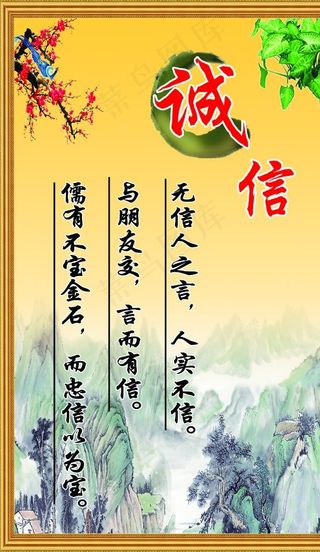 诚信
无信人之言，人实不信。
与朋友交，言而有信。
儒有不宝金石，而忠信以为宝。